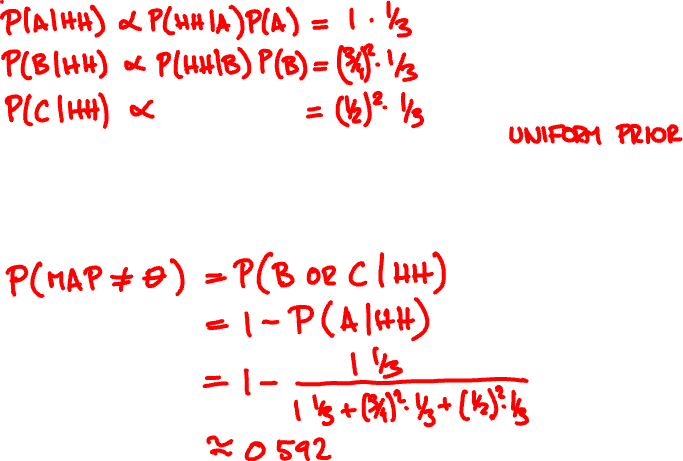 P(A|HH) ∝ P(HH|A)P(A) = 1 · 1/3
P(B|HH) ∝ P(HH|B) P(B) = (3/4)² · 1/3
P(C|HH) ∝ = (1/2)² · 1/3
UNIFORM PRIOR
P(MAP ≠ θ) = P(B OR C | HH)
= 1 - P(A|HH)
= 1 - (1 1/3) / (1 1/3 + (3/4)² · 1/3 + (1/2)² · 1/3)
≈ 0 592